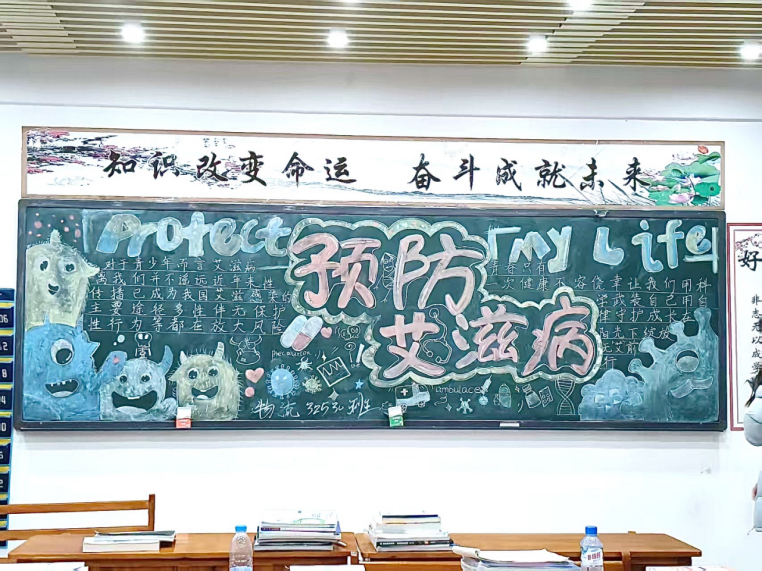 知识改变命运 奋斗成就未来
Protect My Life
预防
艾滋病
对于青少年而言艾滋病
离我们并不遥远近年来性
传播已成为我国艾滋感染的
主要途径多性伴无保护
性行为等都在放大风险
青春只有
一次健康不容侥幸让我们用科
学武装自己用自
律守护成长在
阳光下绽放
无艾前
行
物流325班
ambulance
好